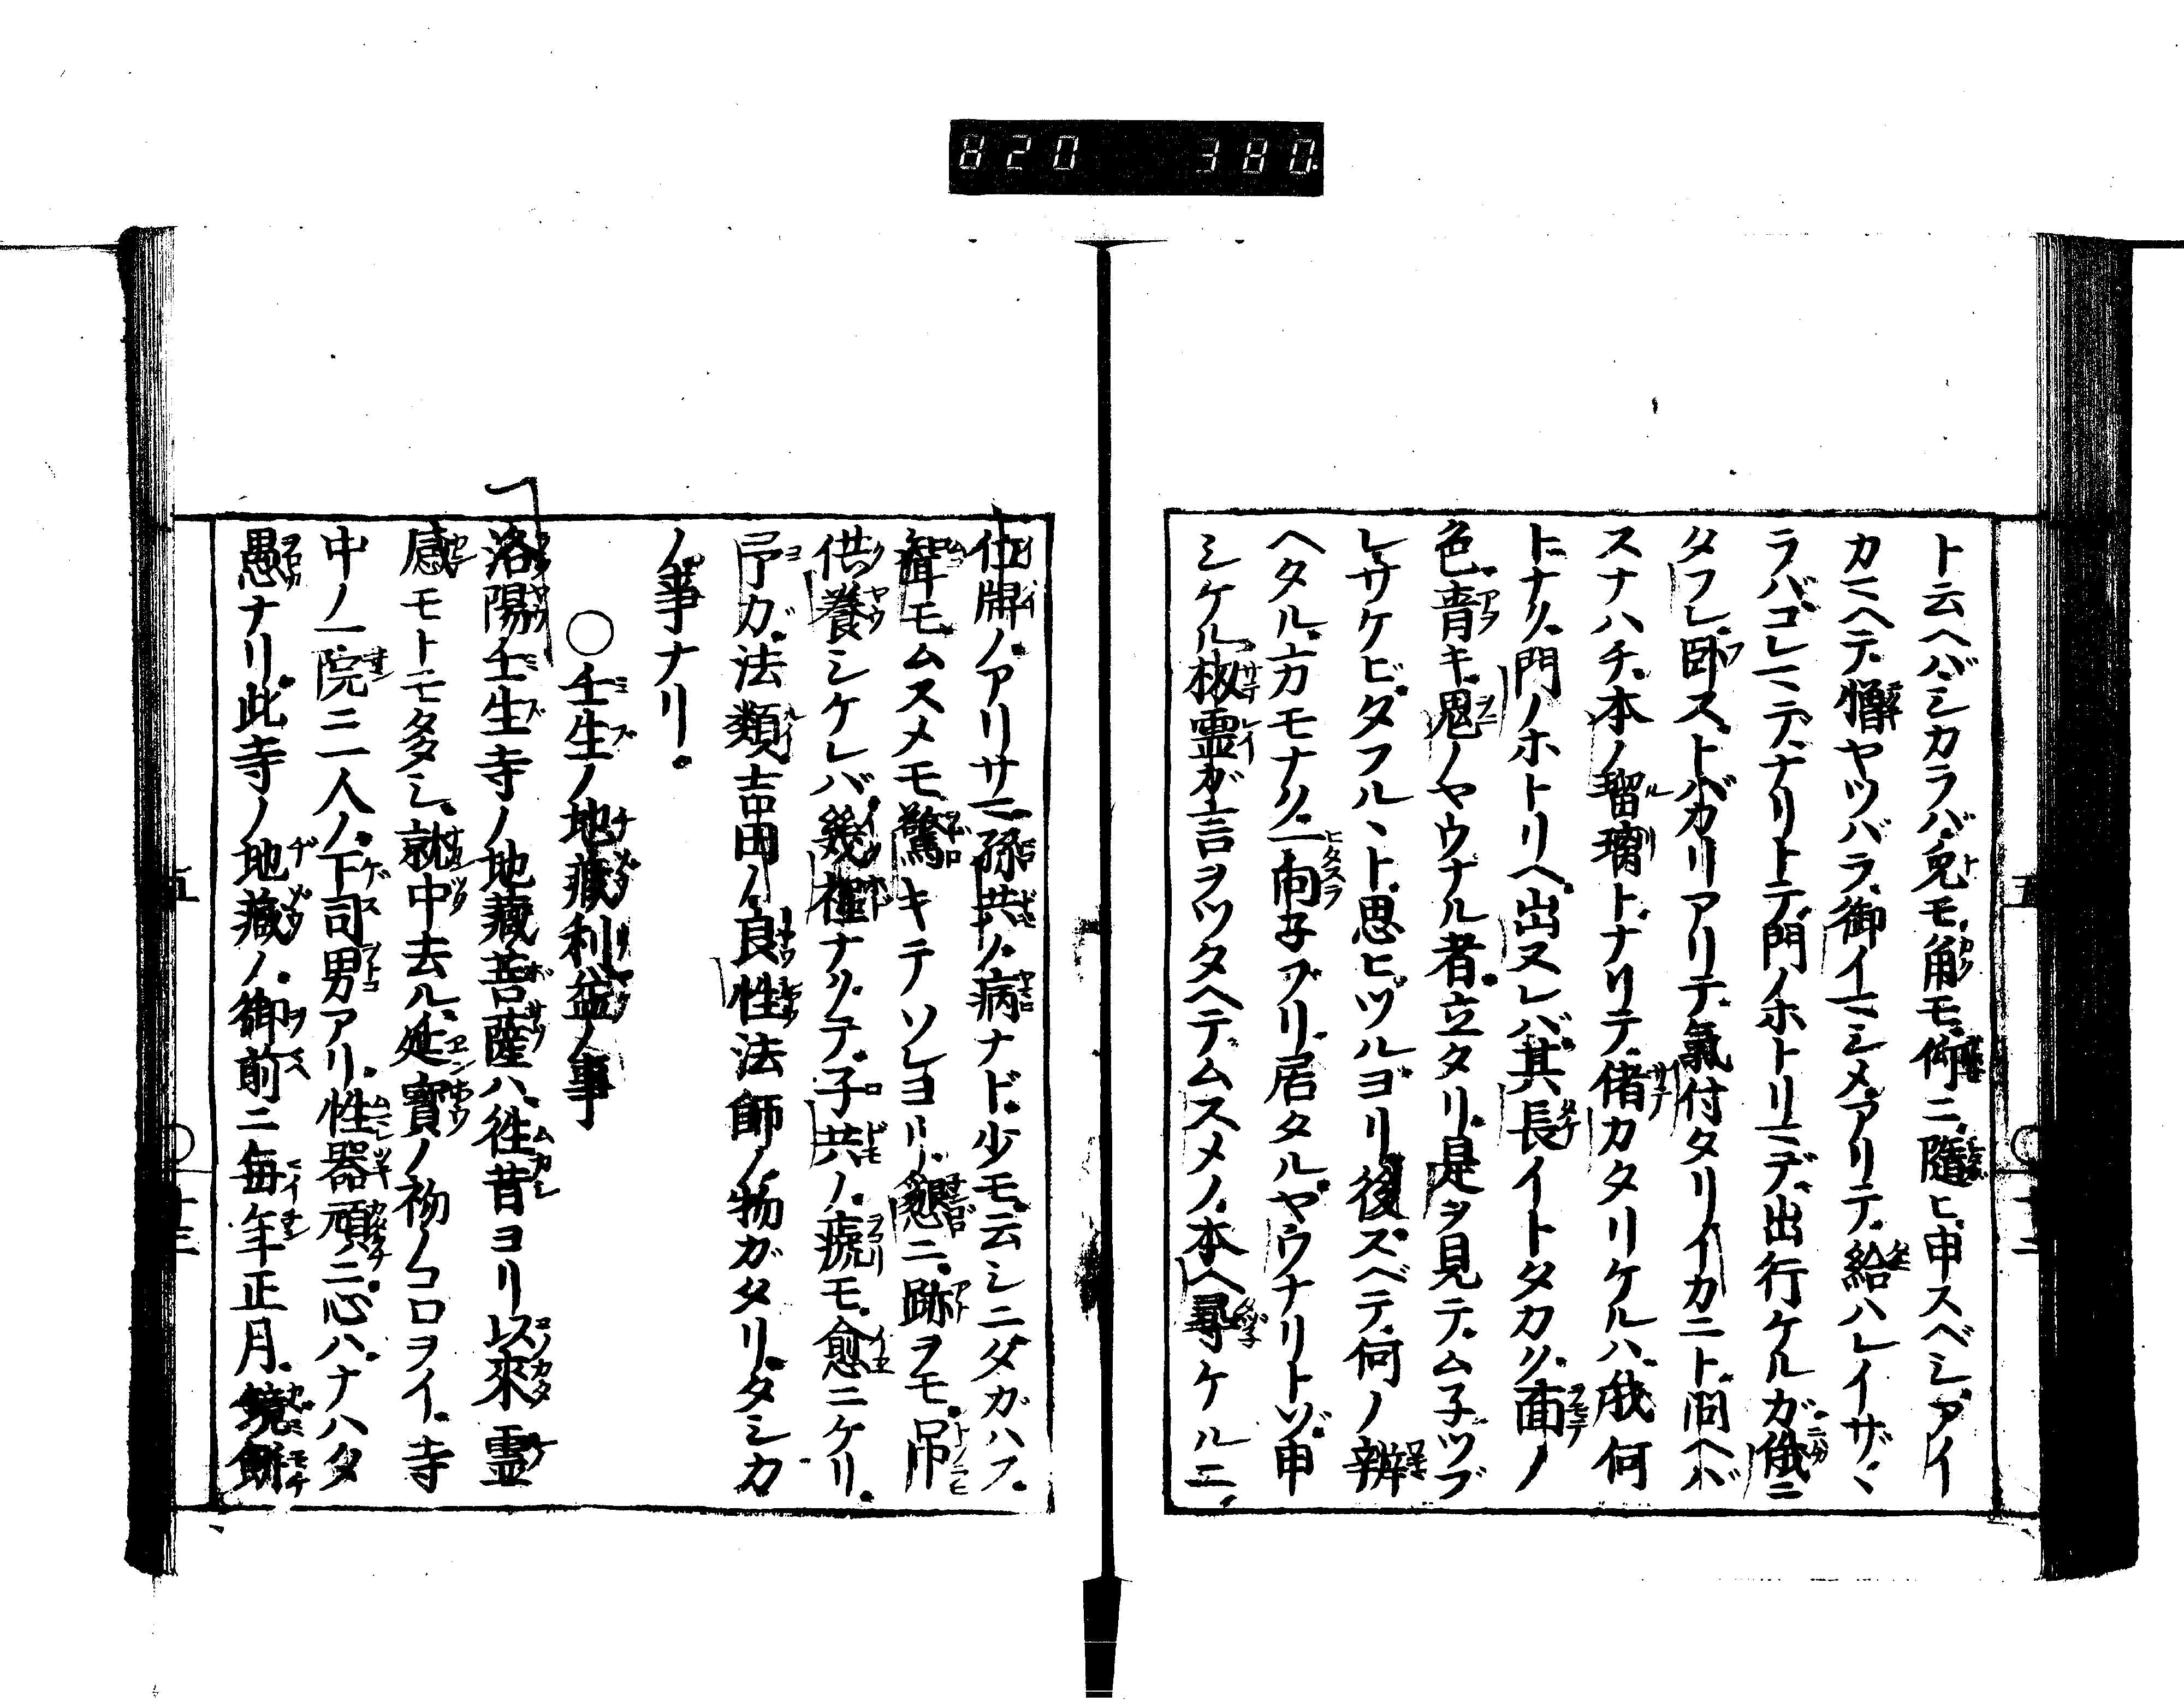 820 380
トニ云ヘバ、シカラバ、兎モ、角モ、仰ニ、隨ヒ、申スベシ、アイ
カマヘテ、懈ヤツバラ、御イマシメ、アリテ、給ハレ、イザヽ
ラバ、コレマテ、ナリトテ、門ノホトリマデ、出行ケルガ、俄ニ
タフレ、臥ス、トバカリアリテ、氣付タリ、イカニト、問ヘバ
スナハチ、本ノ瑠璃ト、ナリテ、偖カタリケルハ、我何
トナク、門ノホトリヘ、出ヌレバ、其長イトタカク、面ノ
色、青キ、鬼ノヤウナル者、立タリ、是ヲ見テ、ム子ツブ
レ、サケビ、タフルヽト、思ヒツルヨリ、後、スベテ、何ノ辨
ヘタル、方モナク、一向子ブリ、居タルヤウナリトゾ、申
シケル、扨靈ガ言ヲツタヘテ、ムスメノ、本ヘ尋ケルニ、
位牌ノ、アリサマ、孫共ノ、病ナド、少モ、云シニタガハズ、
聟モ、ムスメモ驚キテ、ソレヨリ、懇ニ、跡ヲモ、吊
供養シケレバ、幾程ナクテ、子共ノ、瘧モ、愈ニケリ、
予ガ、法類吉田ノ、良性法師ノ、物ガタリ、タシカ
ノ事ナリ。
○壬生ノ地藏利益ノ事
洛陽壬生寺ノ地藏菩薩ハ、徃昔ヨリ以來靈
感モトモ多シ、就中去ル、延寳ノ初ノコロヲイ、寺
中ノ一院ニ一人ノ、下司男アリ、性器頑ニ心ハ、ナハタ
愚ナリ、此寺ノ地藏ノ、御前ニ毎年正月、鏡餅
五
○
十三